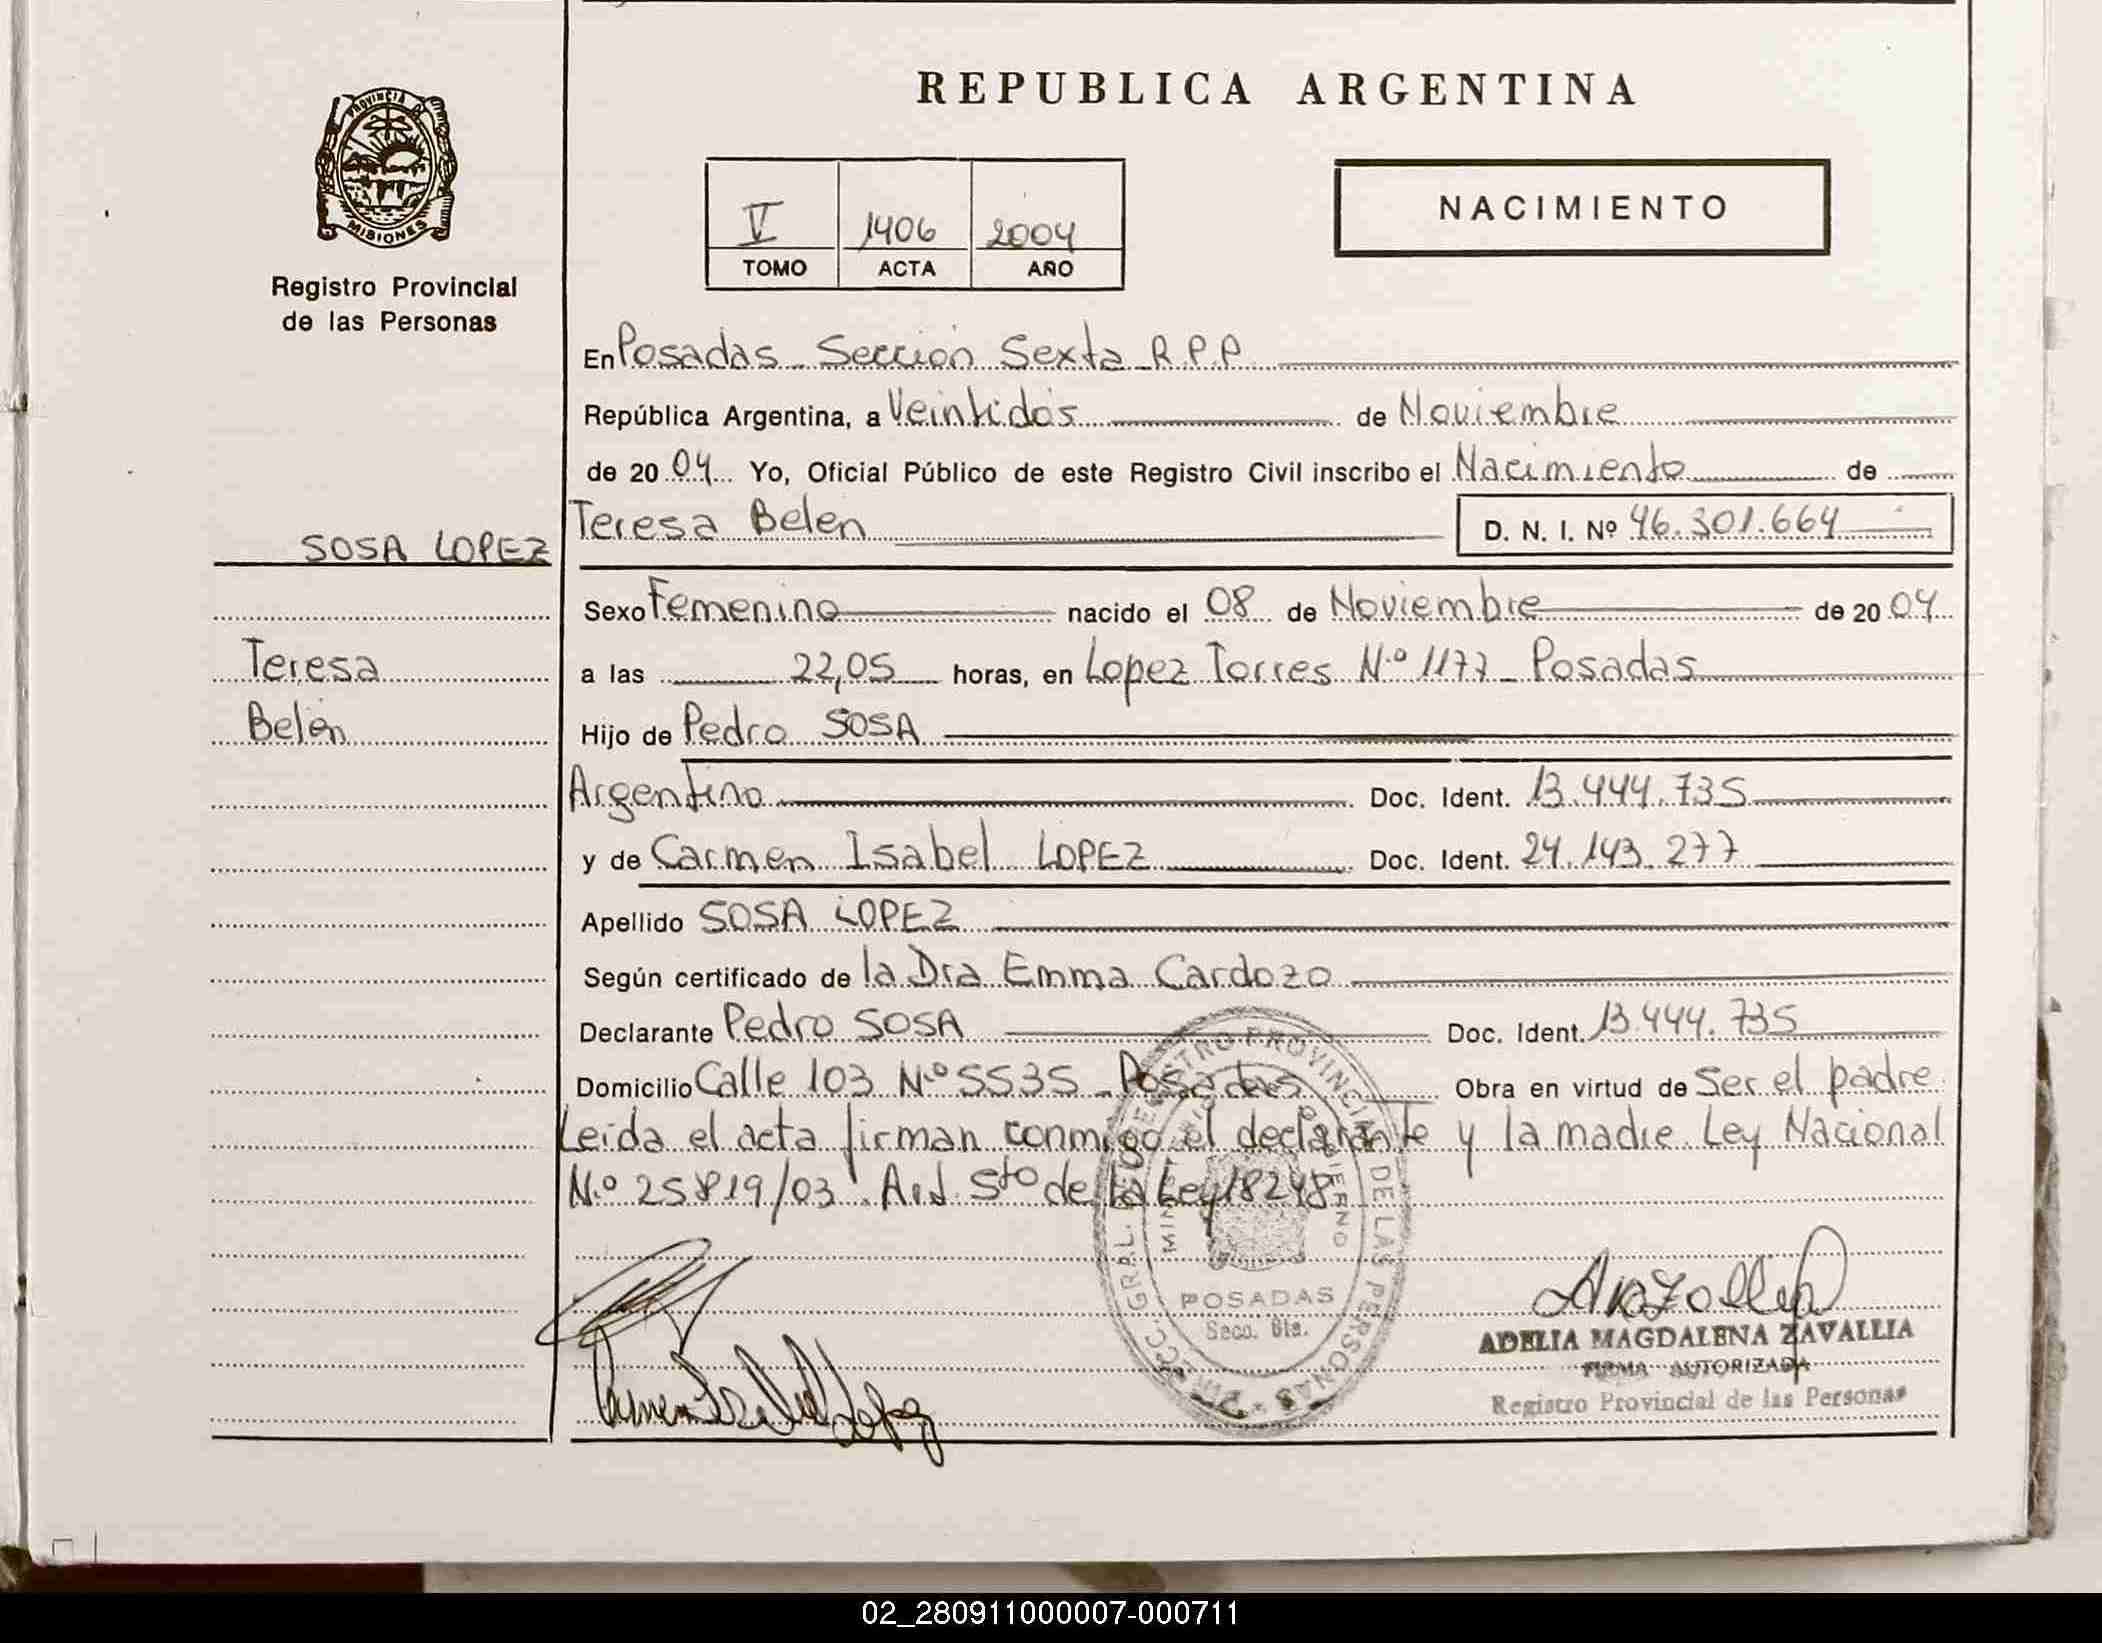 REPUBLICA ARGENTINA
PROVINCIA DE
MISIONES
Registro Provincial
de las Personas
V 1406 2004
TOMO ACTA AÑO
NACIMIENTO
En Posadas - Sección Sexta - R.P.P.
República Argentina, a Veintidós de Noviembre
de 2004 Yo, Oficial Público de este Registro Civil inscribo el Nacimiento de
SOSA LOPEZ
Teresa Belén D. N. I. Nº 46.301.664
Sexo Femenino nacido el 08 de Noviembre de 2004
Teresa
a las 22,05 horas, en Lopez Torres N.º 1177 - Posadas
Belén
Hijo de Pedro SOSA
Argentino Doc. Ident. 13.444.735
y de Carmen Isabel LOPEZ Doc. Ident. 24.143.277
Apellido SOSA LOPEZ
Según certificado de la Dra Emma Cardozo
Declarante Pedro SOSA Doc. Ident. 13.444.735
Domicilio Calle 103 N.º 5535 - Posadas Obra en virtud de Ser el padre
Leída el acta firman conmigo el declarante y la madre Ley Nacional
N.º 25819/03 Art. 5to de la Ley 18248
GRAL. REGISTRO PROVINCIAL DE LAS PERSONAS
POSADAS
Secc. 6ta.
Carmen Isabel Lopez
ADELIA MAGDALENA ZAVALLIA
FIRMA AUTORIZADA
Registro Provincial de las Personas
02_280911000007-000711